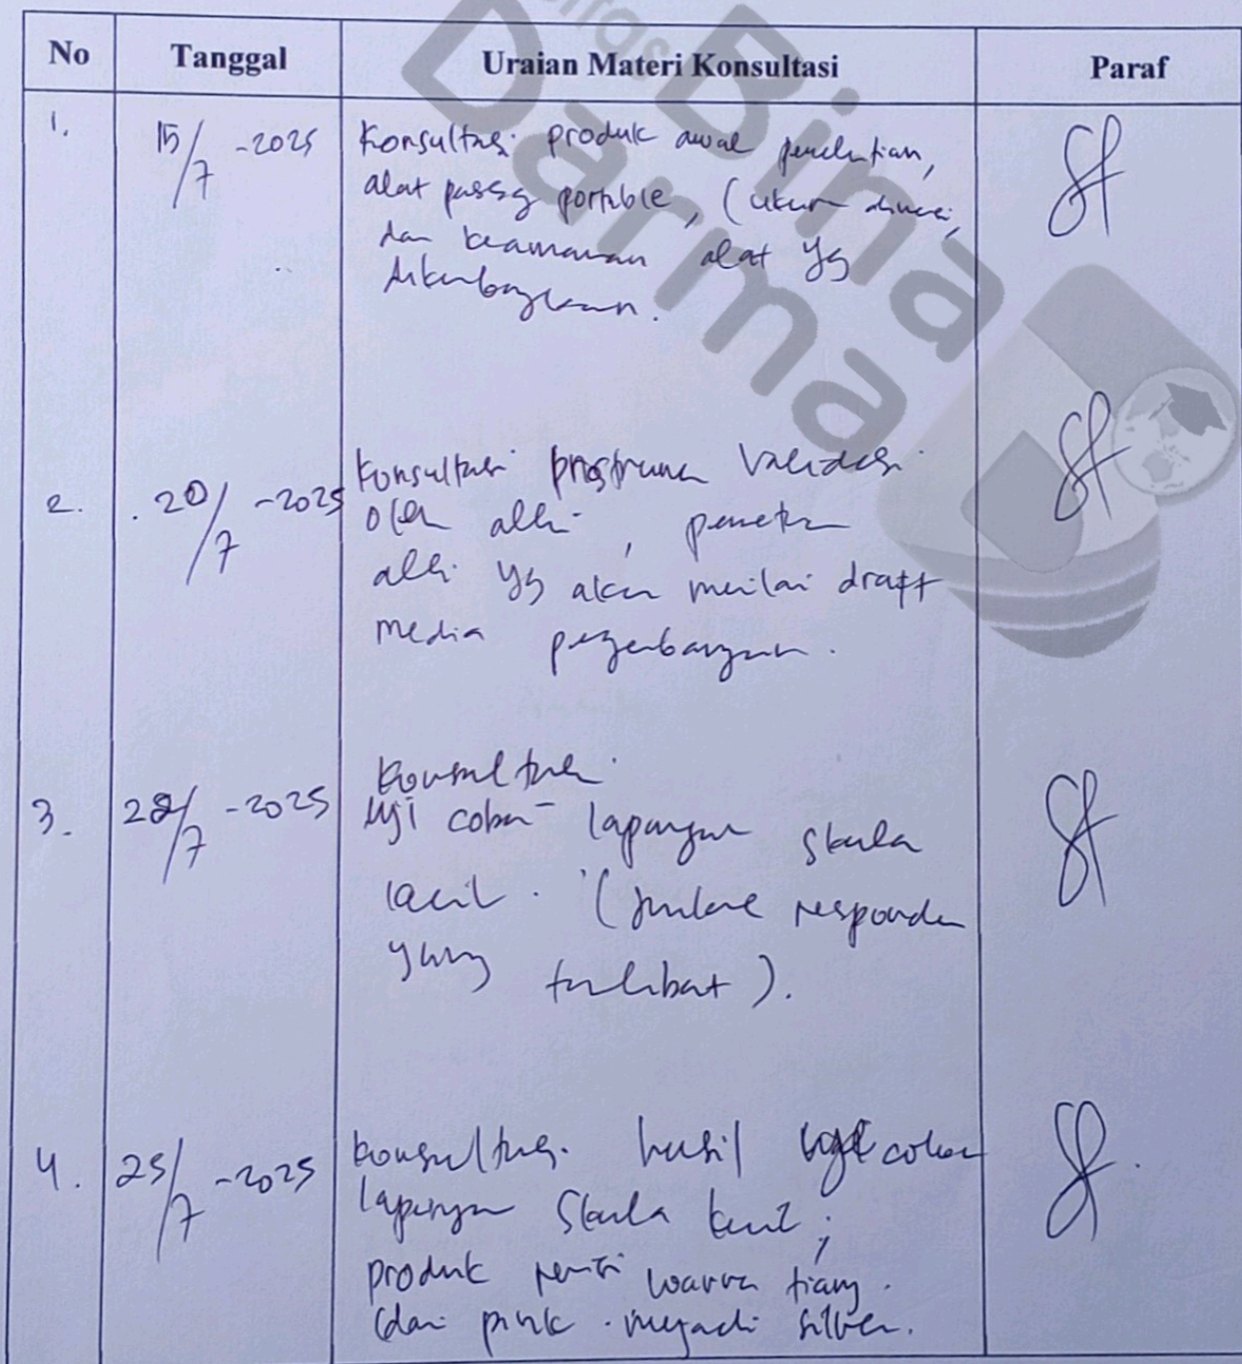 No Tanggal Uraian Materi Konsultasi Paraf
1. 15/7 -2025 Konsultasi produk awal penelitian,
alat passing portable, (ukuran dimensi,
dan keamanan alat yg
dikembangkan.
2. 20/7 -2025 Konsultasi validasi
oleh ahli,
ahli yg akan menilai draft
media pengembangan.
Konsultasi
3. 22/7 -2025 Uji coba lapangan skala
kecil. (jumlah responden
yang terlibat).
4. 25/7 -2025 Konsultasi hasil coba
lapangan skala kecil;
produk revisi warna tiang.
(dari pink menjadi silver.
Bina
Darma